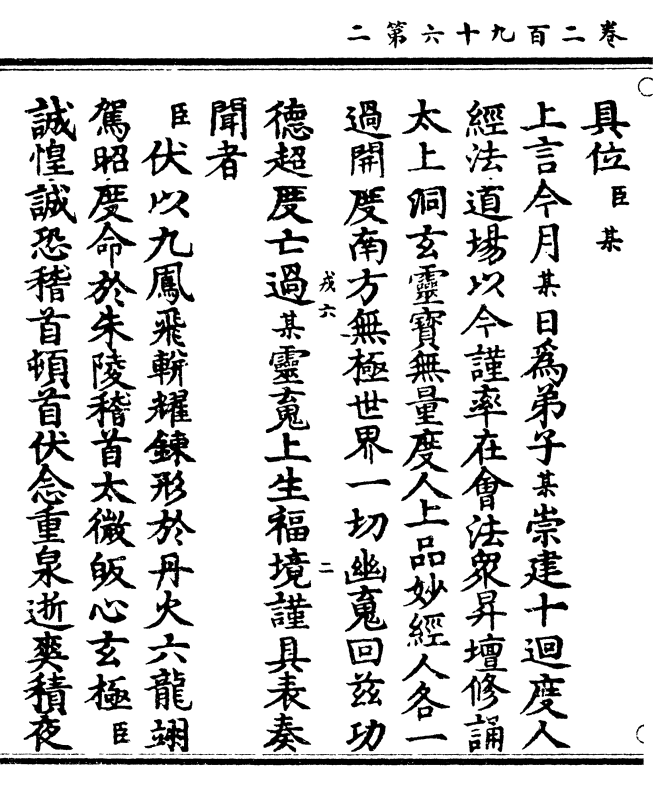 卷二百九十六第二
具位臣某
上言今月某日為弟子某崇建十迴度人
經法道場以今謹率在會法眾昇壇修誦
太上洞玄靈寶無量度人上品妙經人各一
過開度南方無極世界一切幽䰟回茲功
戎六
二
德超度亡過某靈䰟上生福境謹具表奏
聞者
臣伏以九鳳飛軿耀鍊形於丹火六龍翊
駕昭度命於朱陵稽首太微皈心玄極臣
誠惶誠恐稽首頓首伏念重泉逝爽積夜